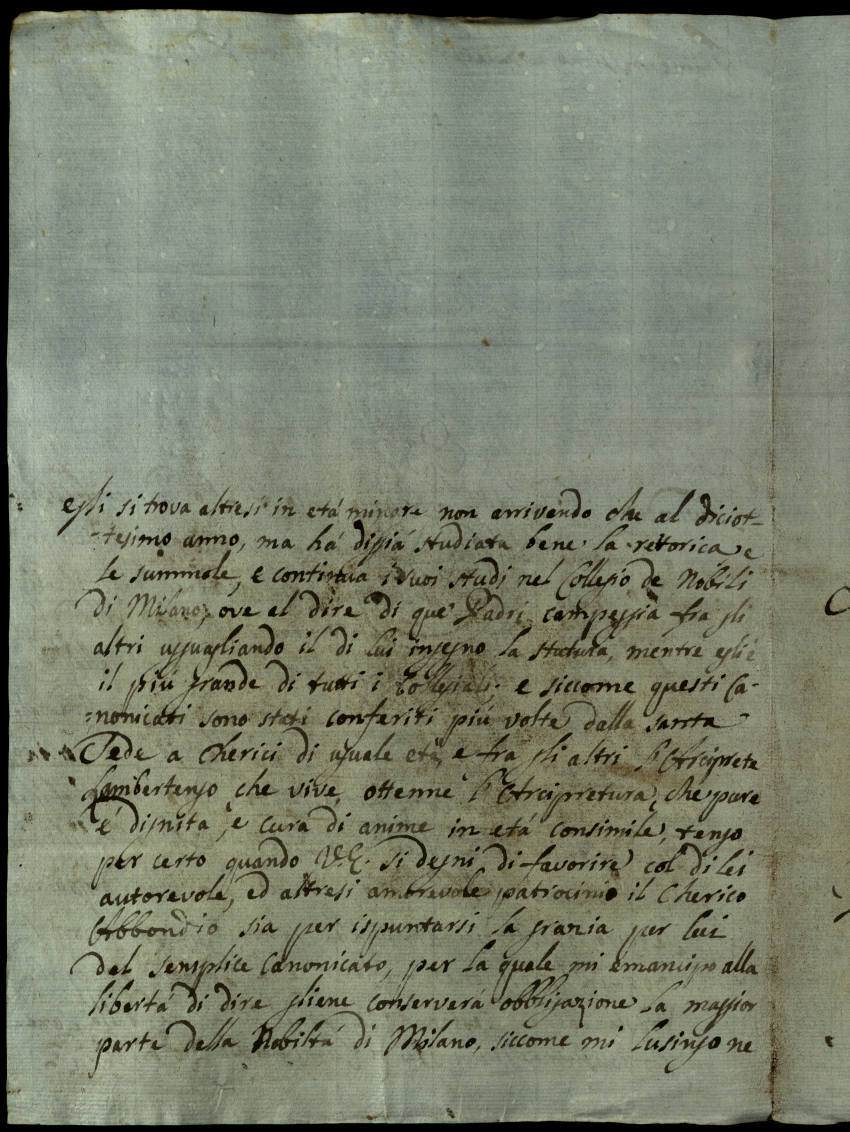 egli si trova altresi in etá minore non arrivendo che al diciot-
-tesimo anno, ma há digiá studiata bene la retorica e
le summole, e continua i suoi studj nel Collegio de Nobili
di Milano, ove al dire di que' Padri campeggia fra gli
altri uguagliando il di lui ingegno la statura, mentre egli é
il piú grande di tutti i Collegiali. e siccome questi Ca-
-nonicati sono stati conferiti piú volte dalla santa
Sede a Cherici di uguale etá, e fra gli altri l'Arciprete
Lambertengo che vive, ottenne l'Arcipretura, che pure
é dignitá, e cura di anime in etá consimile, tengo
per certo quando V.E. si degni di favorire col di lei
autorevole, ed altresi amorevole patrocinio il Cherico
Abbondio sia per ispuntarsi la grazia per lui
del semplice Canonicato, per la quale mi emancipo alla
libertá di dire gliene conserverá obbligazione la maggior
parte della Nobiltá di Milano, siccome mi lusingo ne